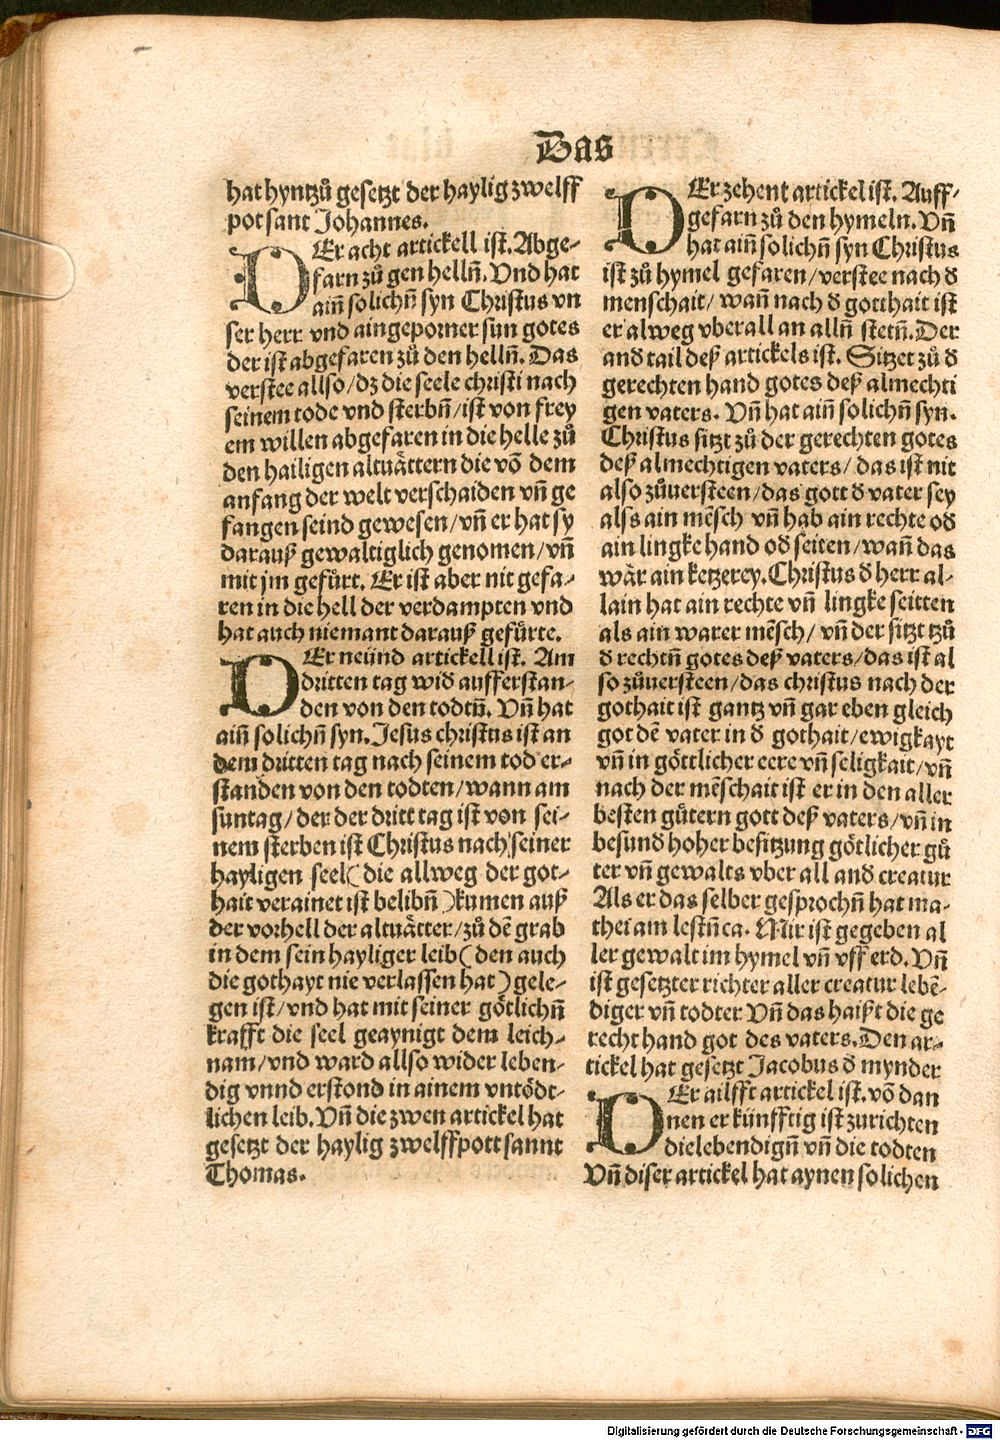 Das
hat hyntzů gesetzt der haylig zwelff
pot sant Johannes.
DEr acht artickell ist. Abge-
farn zů gen hellñ. Vnd hat
aiñ solichñ syn Christus vn
ser herr vnd aingeporner sun gotes
der ist abgefaren zů den hellñ. Das
verstee allso/dz die seele christi nach
seinem tode vnd sterbñ/ist von frey
em willen abgefaren in die helle zů
den hailigen altuättern die võ dem
anfang der welt verschaiden vñ ge
fangen seind gewesen/vñ er hat sy
darauß gewaltiglich genomen/vñ
mit jm gefürt. Er ist aber nit gefa-
ren in die hell der verdampten vnd
hat auch niemant darauß gefürte.
DEr neünd artickell ist. Am
dritten tag wid aufferstan-
den von den todtñ. Vñ hat
aiñ solichñ syn. Jesus christus ist an
dem dritten tag nach seinem tod er-
standen von den todten/wann am
suntag/der der dritt tag ist von sei-
nem sterben ist Christus nach seiner
hayligen seel(die allweg der got-
hait verainet ist belibñ)kumen auß
der vorhell der altuätter/zů dẽ grab
in dem sein hayliger leib(den auch
die gothayt nie verlassen hat)gele-
gen ist/vnd hat mit seiner götlichñ
krafft die seel geaynigt dem leich-
nam/vnd ward allso wider leben-
dig vnnd erstond in ainem vntödt-
lichen leib. Vñ die zwen artickel hat
gesetzt der haylig zwelffpott sannt
Thomas.
DEr zehent artickel ist. Auff-
gefarn zů den hymeln. Vñ
hat aiñ solichñ syn Christus
ist zů hymel gefaren/verstee nach d
menschait/wañ nach d gotthait ist
er alweg vberall an allñ stetñ. Der
and tail deß artickels ist. Sitzet zů d
gerechten hand gotes deß almechti
gen vaters. Vñ hat aiñ solichñ syn.
Christus sitzt zů der gerechten gotes
deß almechtigen vaters/das ist nit
also zůuersteen/das gott d vater sey
alls ain mẽsch vñ hab ain rechte od
ain lingke hand od seiten/wañ das
wär ain ketzerey. Christus d herr al-
lain hat ain rechte vñ lingke seitten
als ain warer mẽsch/vñ der sitzt tzů
d rechtñ gotes deß vaters/das ist al
so zůuersteen/das christus nach der
gothait ist gantz vñ gar eben gleich
got dẽ vater in d gothait/ewigkayt
vñ in göttlicher eere vñ seligkait/vñ
nach der mẽschait ist er in den aller
besten gůtern gott deß vaters/vñ in
besund hoher besitzung götlicher gů
ter vñ gewalts vber all and creatur
Als er das selber gesprochñ hat ma-
thei am lestñ ca. Mir ist gegeben al
ler gewalt im hymel vñ vff erd. Vñ
ist gesetzter richter aller creatur lebẽ-
diger vñ todter Vñ das haißt die ge
recht hand got des vaters. Den ar-
tickel hat gesetzt Jacobus d mynder
DEr ailfft artickel ist. võ dan
nen er künfftig ist zurichten
die lebendigñ vñ die todten
Vñ diser artickel hat aynen solichen
Digitalisierung gefördert durch die Deutsche Forschungsgemeinschaft - DFG